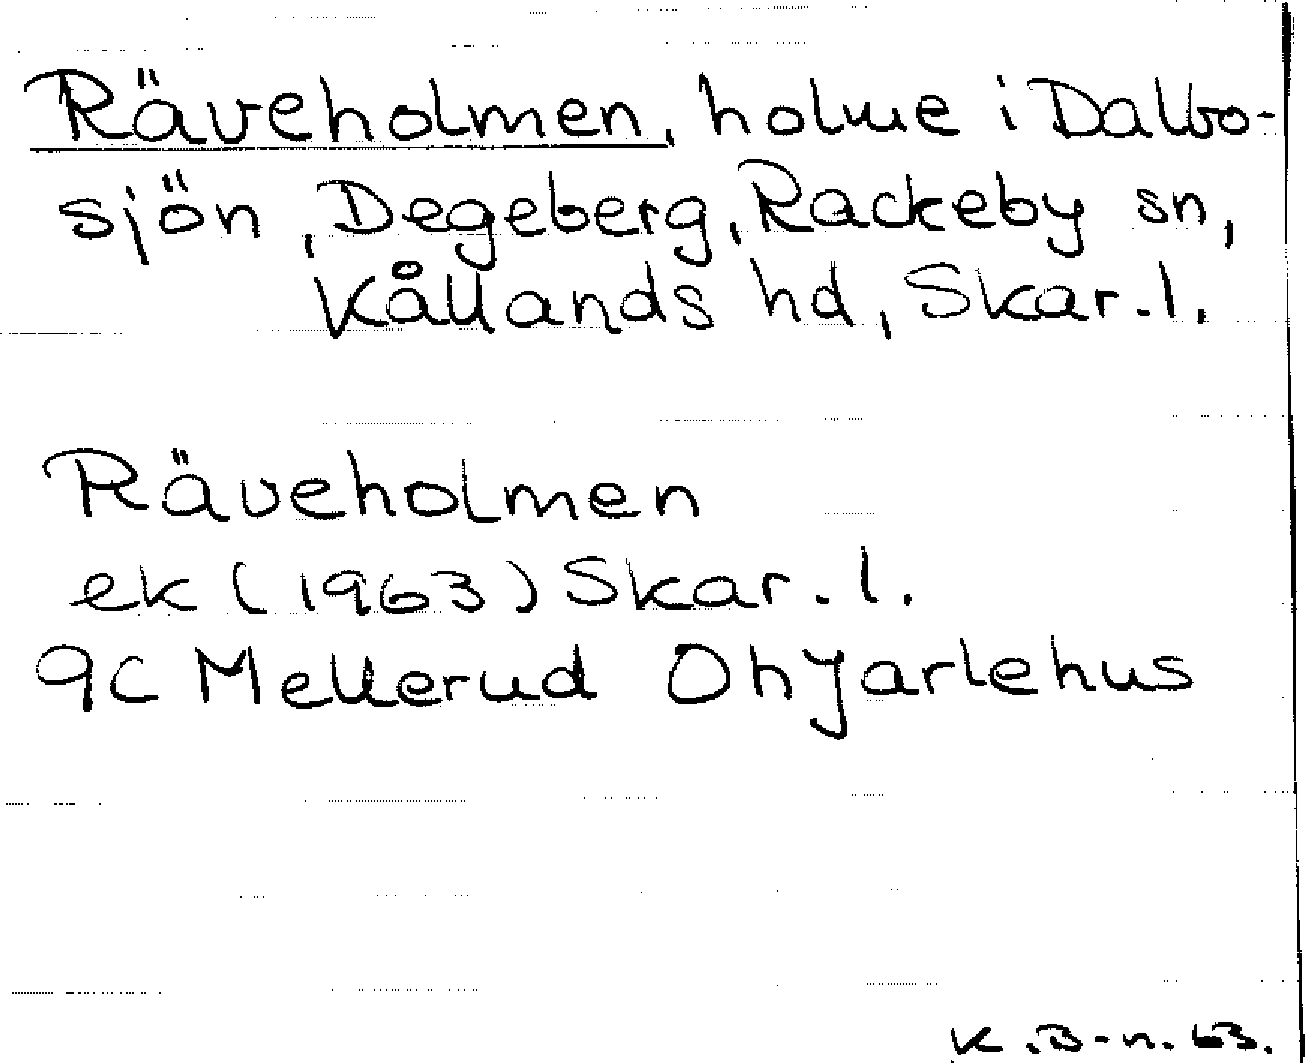 Räveholmen, holme i Dalbo-
sjön, Degeberg, Rackeby sn,
Kållands hd, Skar. l.
Räveholmen
ek (1963) Skar. l.
9C Mellerud O h Jarlehus
K. B-n. 63.